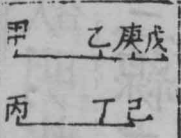 甲 乙庚戊
丙 丁己